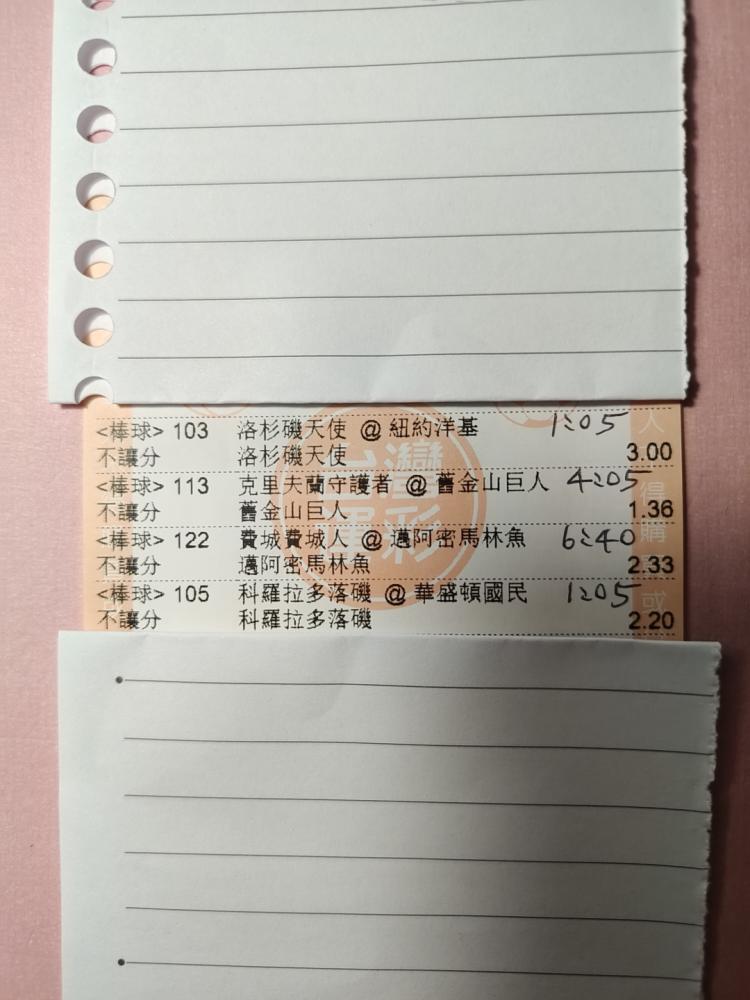 <棒球> 103 洛杉磯天使 @ 紐約洋基 1:05
不讓分 洛杉磯天使 3.00
<棒球> 113 克里夫蘭守護者 @ 舊金山巨人 4:05
不讓分 舊金山巨人 1.36
<棒球> 122 費城費城人 @ 邁阿密馬林魚 6:40
不讓分 邁阿密馬林魚 2.33
<棒球> 105 科羅拉多落磯 @ 華盛頓國民 1:05
不讓分 科羅拉多落磯 2.20
台灣
運彩
人
得
購
或